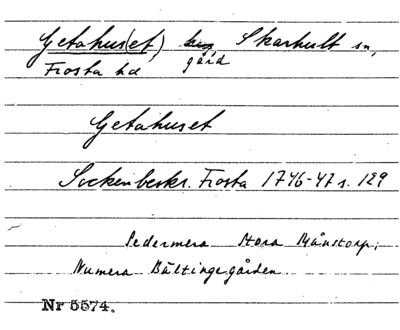 Getahus(et) gård, Skarhult sn,
Frosta hd
Getahuset
Sockenbeskr. Frosta 1746-47 s. 129
Sedermera Stora Månstorp;
Numera Bältingegården.
Nr 5574.